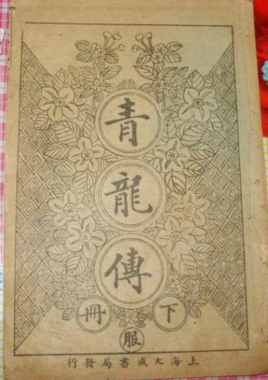 青
龍
傳
下冊
服
上海大成書局發行